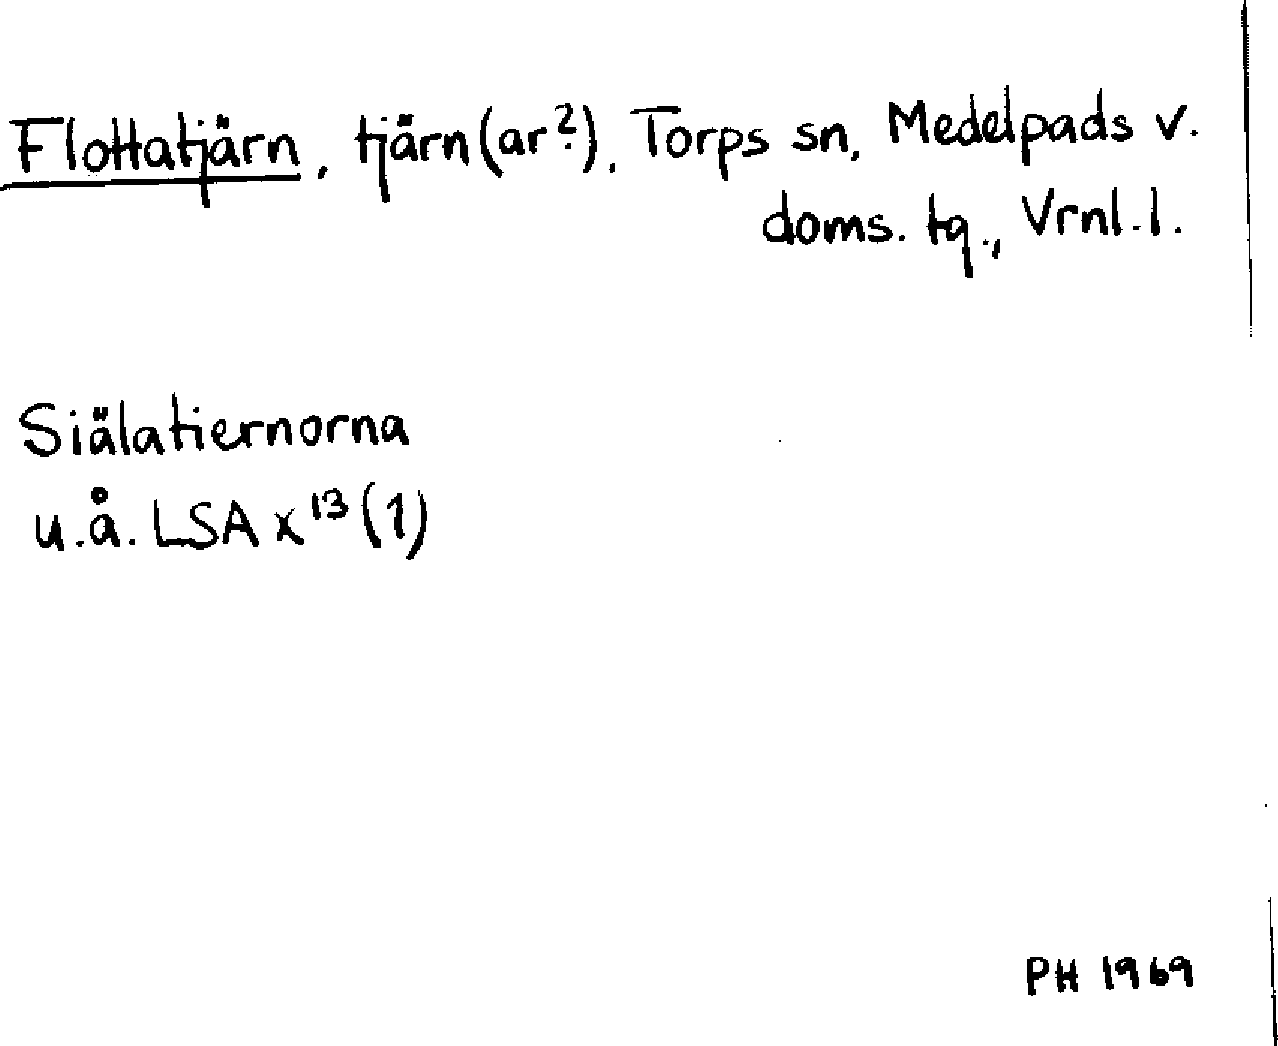 Flottatjärn, tjärn(ar?), Torps sn, Medelpads v.
doms. tg., Vrnl. l.
Siälatiernorna
u.å. LSA x¹³(1)
PH 1969